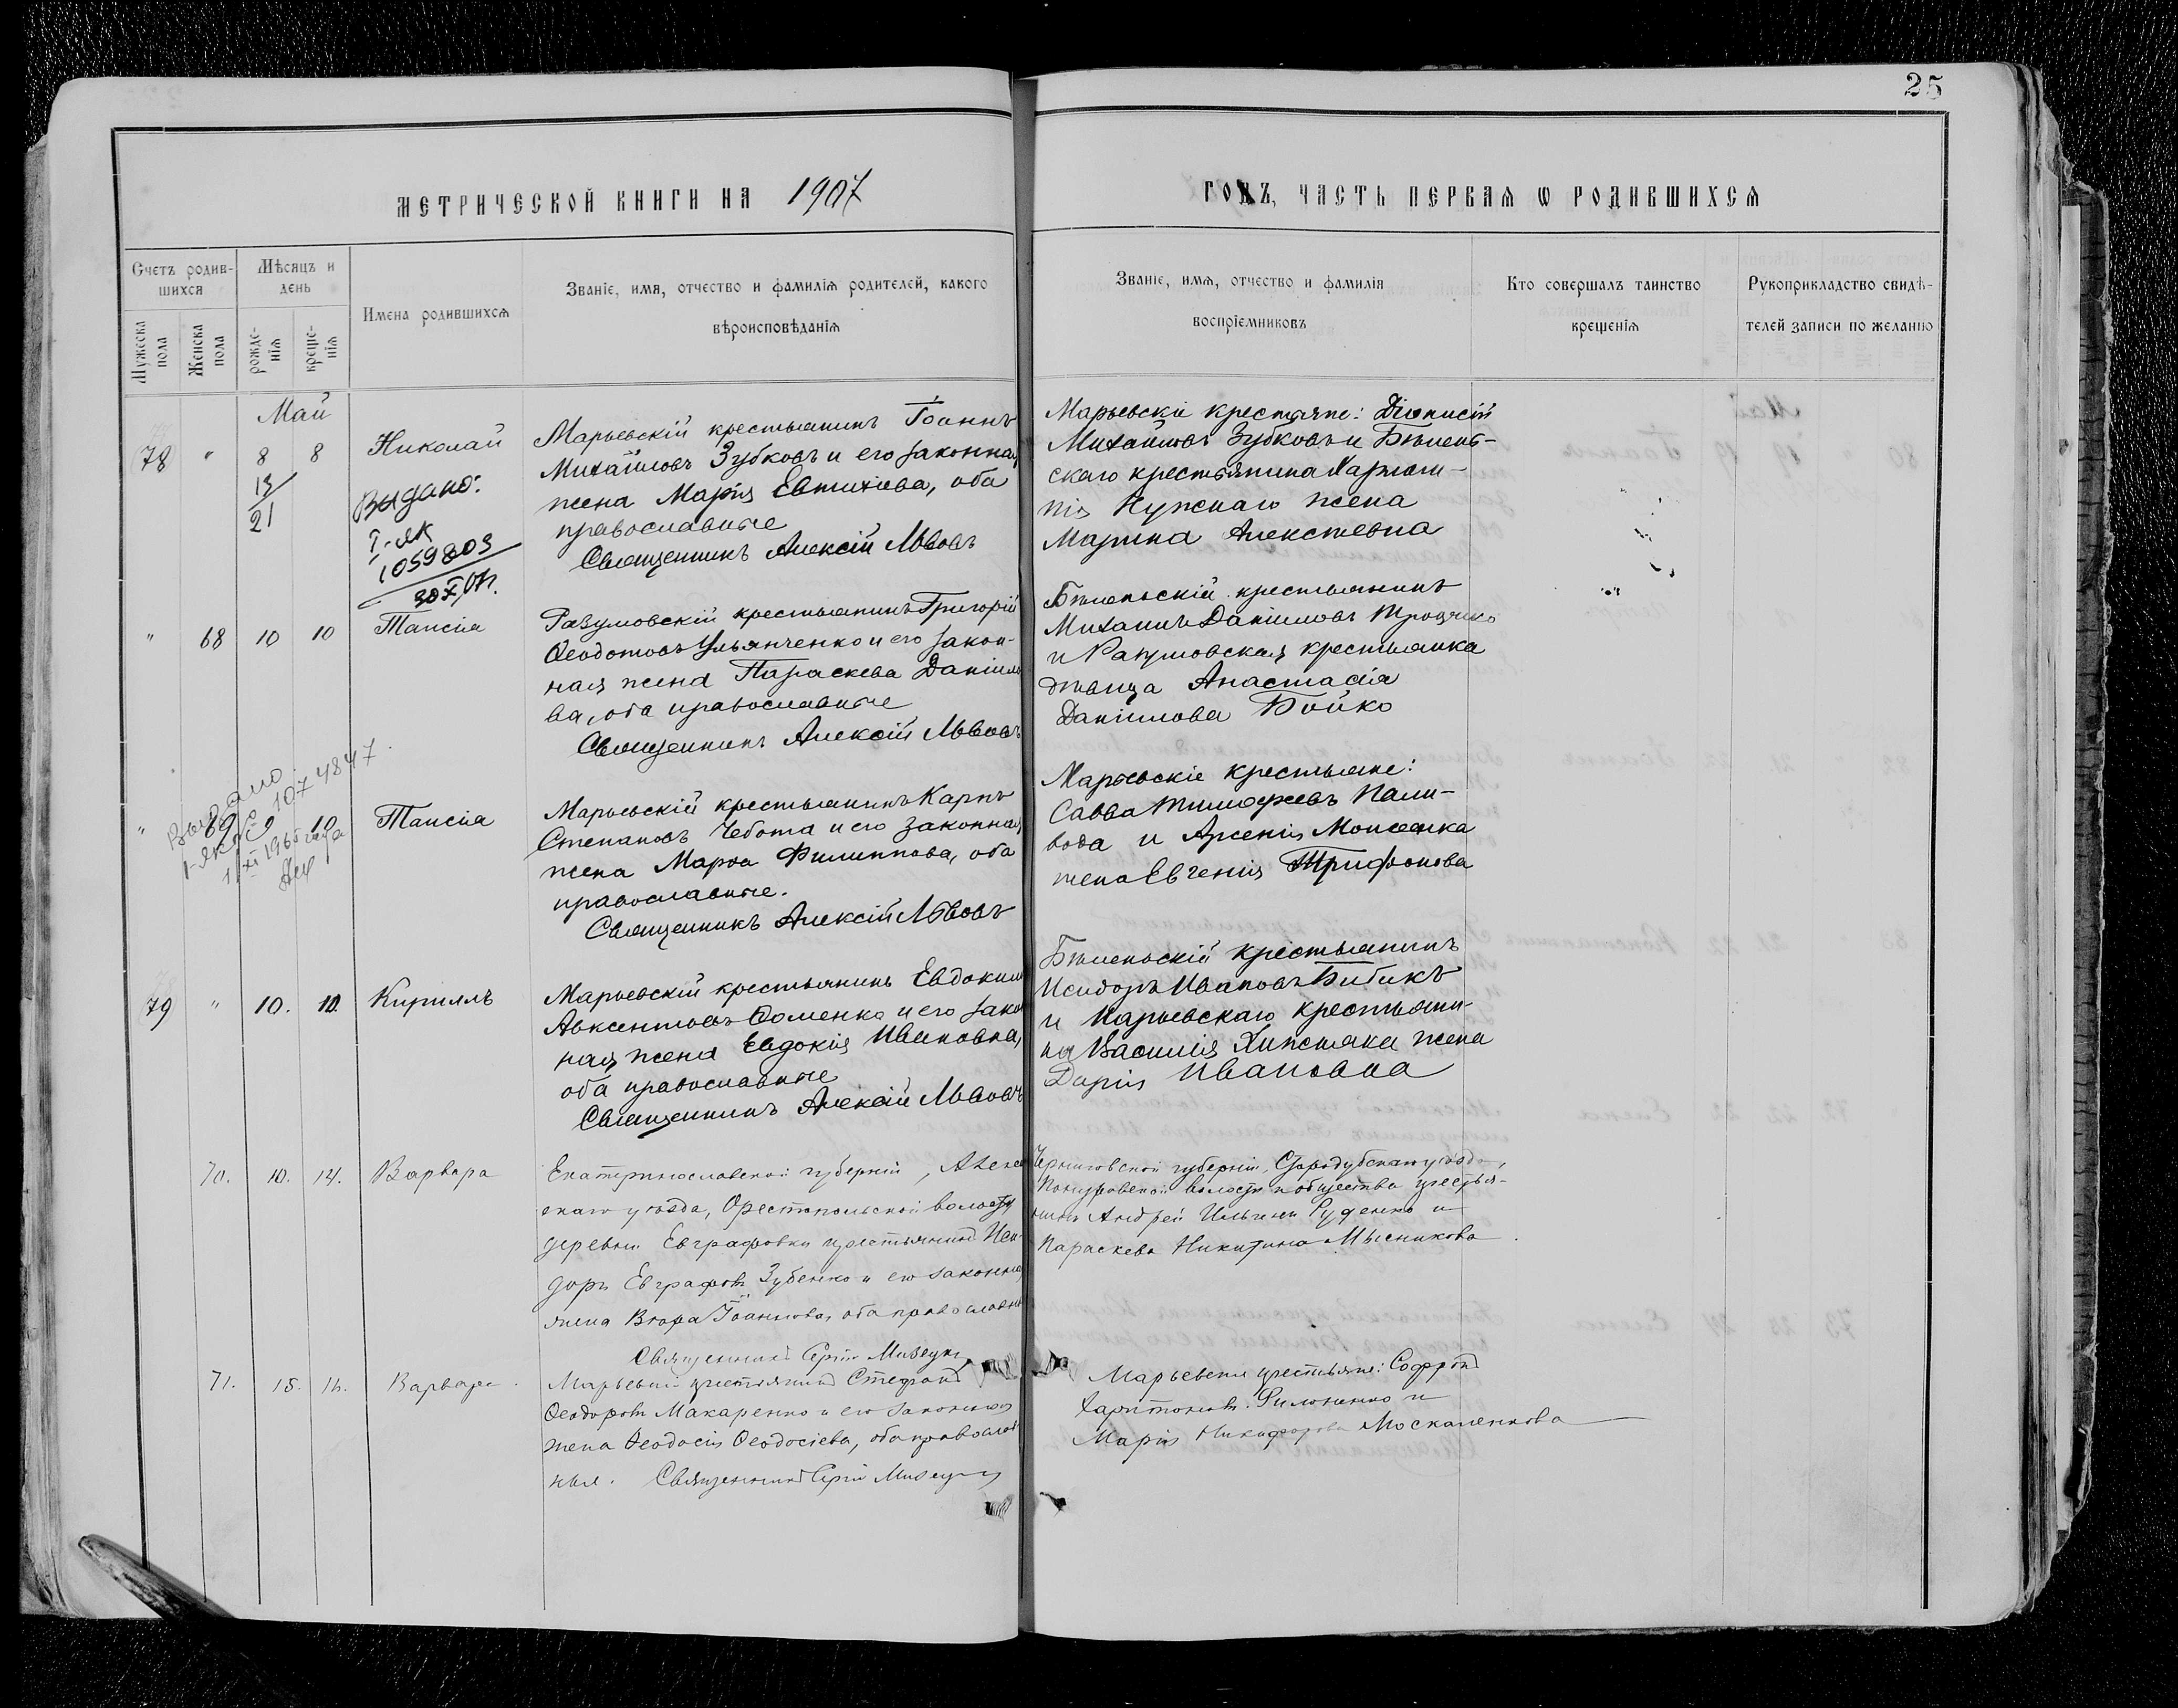 25
МЕТРИЧЕСКОЙ КНИГИ НА 1907
ГОДЪ, ЧАСТЬ ПЕРВАЯ Ѡ РОДИВШИХСЯ
Счетъ родив-
шихся
Мѣсяцъ и
день
Мужеска
пола
Женска
пола
рожде-
нія
креще-
нія
Имена родившихся
Званіе, имя, отчество и фамилія родителей, какого
вѣроисповѣданія
Званіе, имя, отчество и фамилія
воспріемниковъ
Кто совершалъ таинство
крещенія
Рукоприкладство свидѣ-
телей записи по желанію
Май
78 " 8 8 Николай
13/21
Выдано:
I-ЯК
1059803
Марьевскій крестьянинъ Іоаннъ
Михайловъ Зубковъ и его законная
жена Марія Евтихіева, оба
православные
Священникъ Алексій Львовъ
Марьевскіе крестьяне: Діонисій
Михайловъ Зубковъ и Бѣлень-
скаго крестьянина
Нужнаго жена
Марина Алексѣевна
" 68 10 10 Таисія
Разумовскій крестьянинъ Григорій
Ѳеодотовъ Ульянченко и его закон-
ная жена Параскева Даніило
ва, оба православные
Священникъ Алексій Львовъ
Бѣленьскій крестьянинъ
Михаилъ Даніиловъ
и Разумовская крестьянка
дѣвица Анастасія
Даніилова Бойко
" 69 9 10 Таисія
Выдано
1074847
Марьевскій крестьянинъ Карпъ
Степановъ Чебота и его законная
жена Марѳа Филиппова, оба
православные.
Священникъ Алексій Львовъ
Марьевскіе крестьяне:
Савва Тимоѳеевъ Пали-
вода и Арсенія Моисеенка
жена Евгенія Трифонова
79 " 10. 10. Кириллъ
Марьевскій крестьянинъ Евдокимъ
Авксентіевъ Ѳоменко и его закон
ная жена Евдокія Ивановна,
оба православные
Священникъ Алексій Львовъ
Бѣленьскій крестьянинъ
Исидоръ Ивановъ Бибикъ
и Марьевскаго крестьяни-
на Василія жена
Дарія Ивановна
70. 10. 14. Варвара
Екатеринославской губерніи, Алекса
скаго уѣзда, Орестопольской волости
деревни Евграфовки крестьянинъ Иси
доръ Евграфовъ Зубенко и его законная
жена Вѣра Іоаннова, оба православны
Священникъ Сергій
Черниговской губерніи, Стародубскаго уѣзда,
Понуровской волости и общества крестья-
нинъ Андрей Ильинъ Руденко и
Параскева Никитина Мысникова
71. 15. 16. Варвара
Марьевскій крестьянинъ Стефанъ
Ѳеодоровъ Макаренко и его законная
жена Ѳеодосія Ѳеодосіева, оба православ
ные. Священникъ Сергій
Марьевскіе крестьяне: Софронъ
Харитоновъ Филоненко и
Марія Никифорова Москаленкова